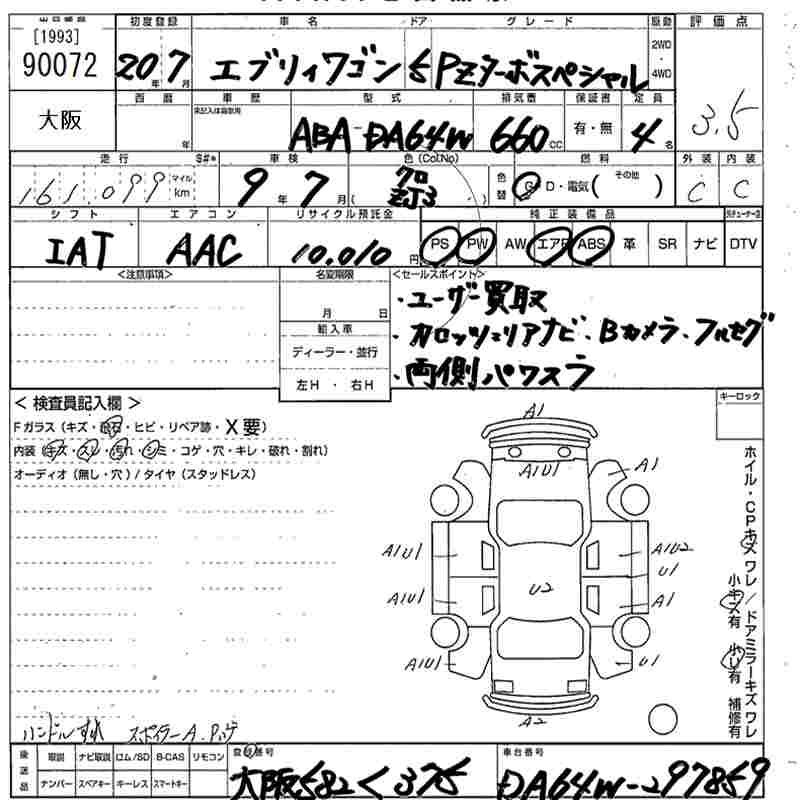 出品番号 初度登録 車名 ドア グレード 原動 評価点
[1993]
90072 20年7月 エブリィワゴン 5 PZターボスペシャル 2WD・4WD 3.5
大阪 西暦 車歴 型式 排気量 保証書 定員
年 ABA-DA64W 660cc 有・無 4名
走行 車検 色(Col.No) 燃料 外装 内装
161,099 マイル km 9年7月 クロ ZJ3 色替 G・D・電気( その他 ) C C
シフト エアコン リサイクル預託金 純正装備品
IAT AAC 10,010円 PS PW AW エアB ABS 革 SR ナビ DTV
<注意事項> 名変期限 <セールスポイント>
月 日 ・ユーザー買取
輸入車 ・カロッツェリアナビ・Bカメラ・フルセグ
ディーラー・並行 ・両側パワスラ
左H・右H
<検査員記入欄> キーロック
Fガラス(キズ・飛石・ヒビ・リペア跡・X要)
内装(キズ・スレ・汚れ・シミ・コゲ・穴・キレ・破れ・割れ)
オーディオ(無し・穴)/タイヤ(スタッドレス)
A1
A1U1 A1
A1U1 A1U2
U1
A1U1 U2 A1
A1U1 U1
A2
ホイル・CPキズ ワレ/ドアミラーキズ ワレ
小キズ有 小U有 補修有
ハンドルすれ スポイラーA.Pハゲ
後送品 取説 ナビ取説 ロム/SD B-CAS リモコン 登録番号 車台番号
ナンバー スペアキー キーレス スマートキー 大阪582く375 DA64W-297859